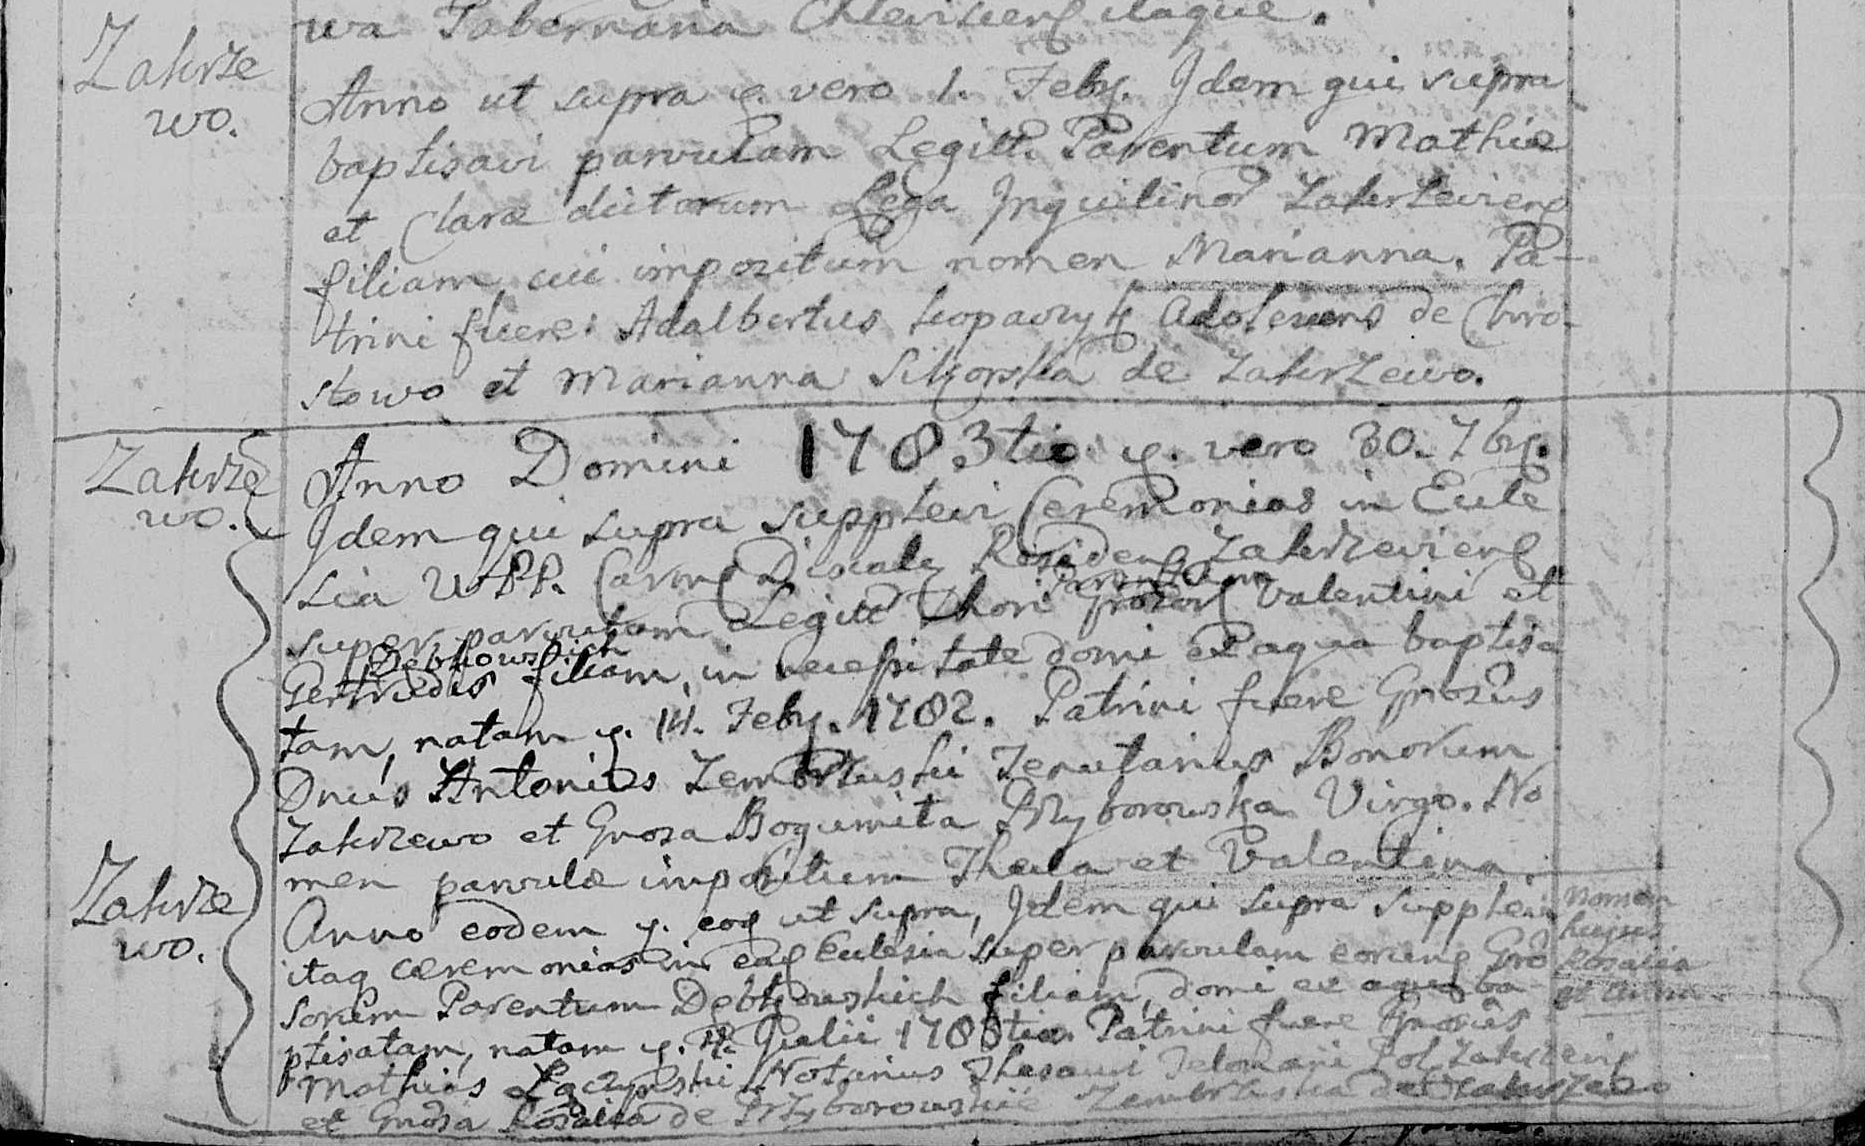 wa Tabernaria Chleviscens itaque.
Zakrze
wo.
Anno ut supra q. vero 1. Febr. Idem qui supra
baptisavi parvulam Legitt. Parentum Mathiæ
et Claræ dictorum Lega Inquilinor Zakrzeviens
filiam cui impositum nomen Marianna. Pa-
trini fuere: Adalbertus adolescens de Chro-
stowo et Marianna Sikorska de Zakrzewo.
Zakrze
wo.
Anno Domini 1783tio q. vero 30. 7br.
Idem qui supra supplevi Ceremonias in Eccle
sia Carm Discale Residens Zakrzeviens
super parvulam Legitt Thori Parentum Valentini et
Gertrudis Debkowskich filiam, in necessitate domi ex aqua baptisa
tam, natam q. 14. Febr. 1782. Patrini fuere Gnosus
Dnus Antonius Zembrzuski Tenutarius Bonorum
Zakrzewo et Gnosa Bogumiła Przyborowska Virgo. No
men parvulæ impositum Thecla et Valentina.
Zakrze
wo.
Anno eodem q. eoq ut supra, Idem qui supra supplevi
itaq cæremonias in eaq Ecclesia super parvulam eorunq Gno
sorum Parentum Debkowskich filiam, domi ex aqua ba-
ptisatam, natam q. Julii 1783tio. Patrini fuere Gnosus
Mathias Łączynski Notarius Thesauri
et Gnosa Rosalia de Przyborowskie Zembrzuska de Zakrzewo
nomen
hujus
Rosalia
et Anna.